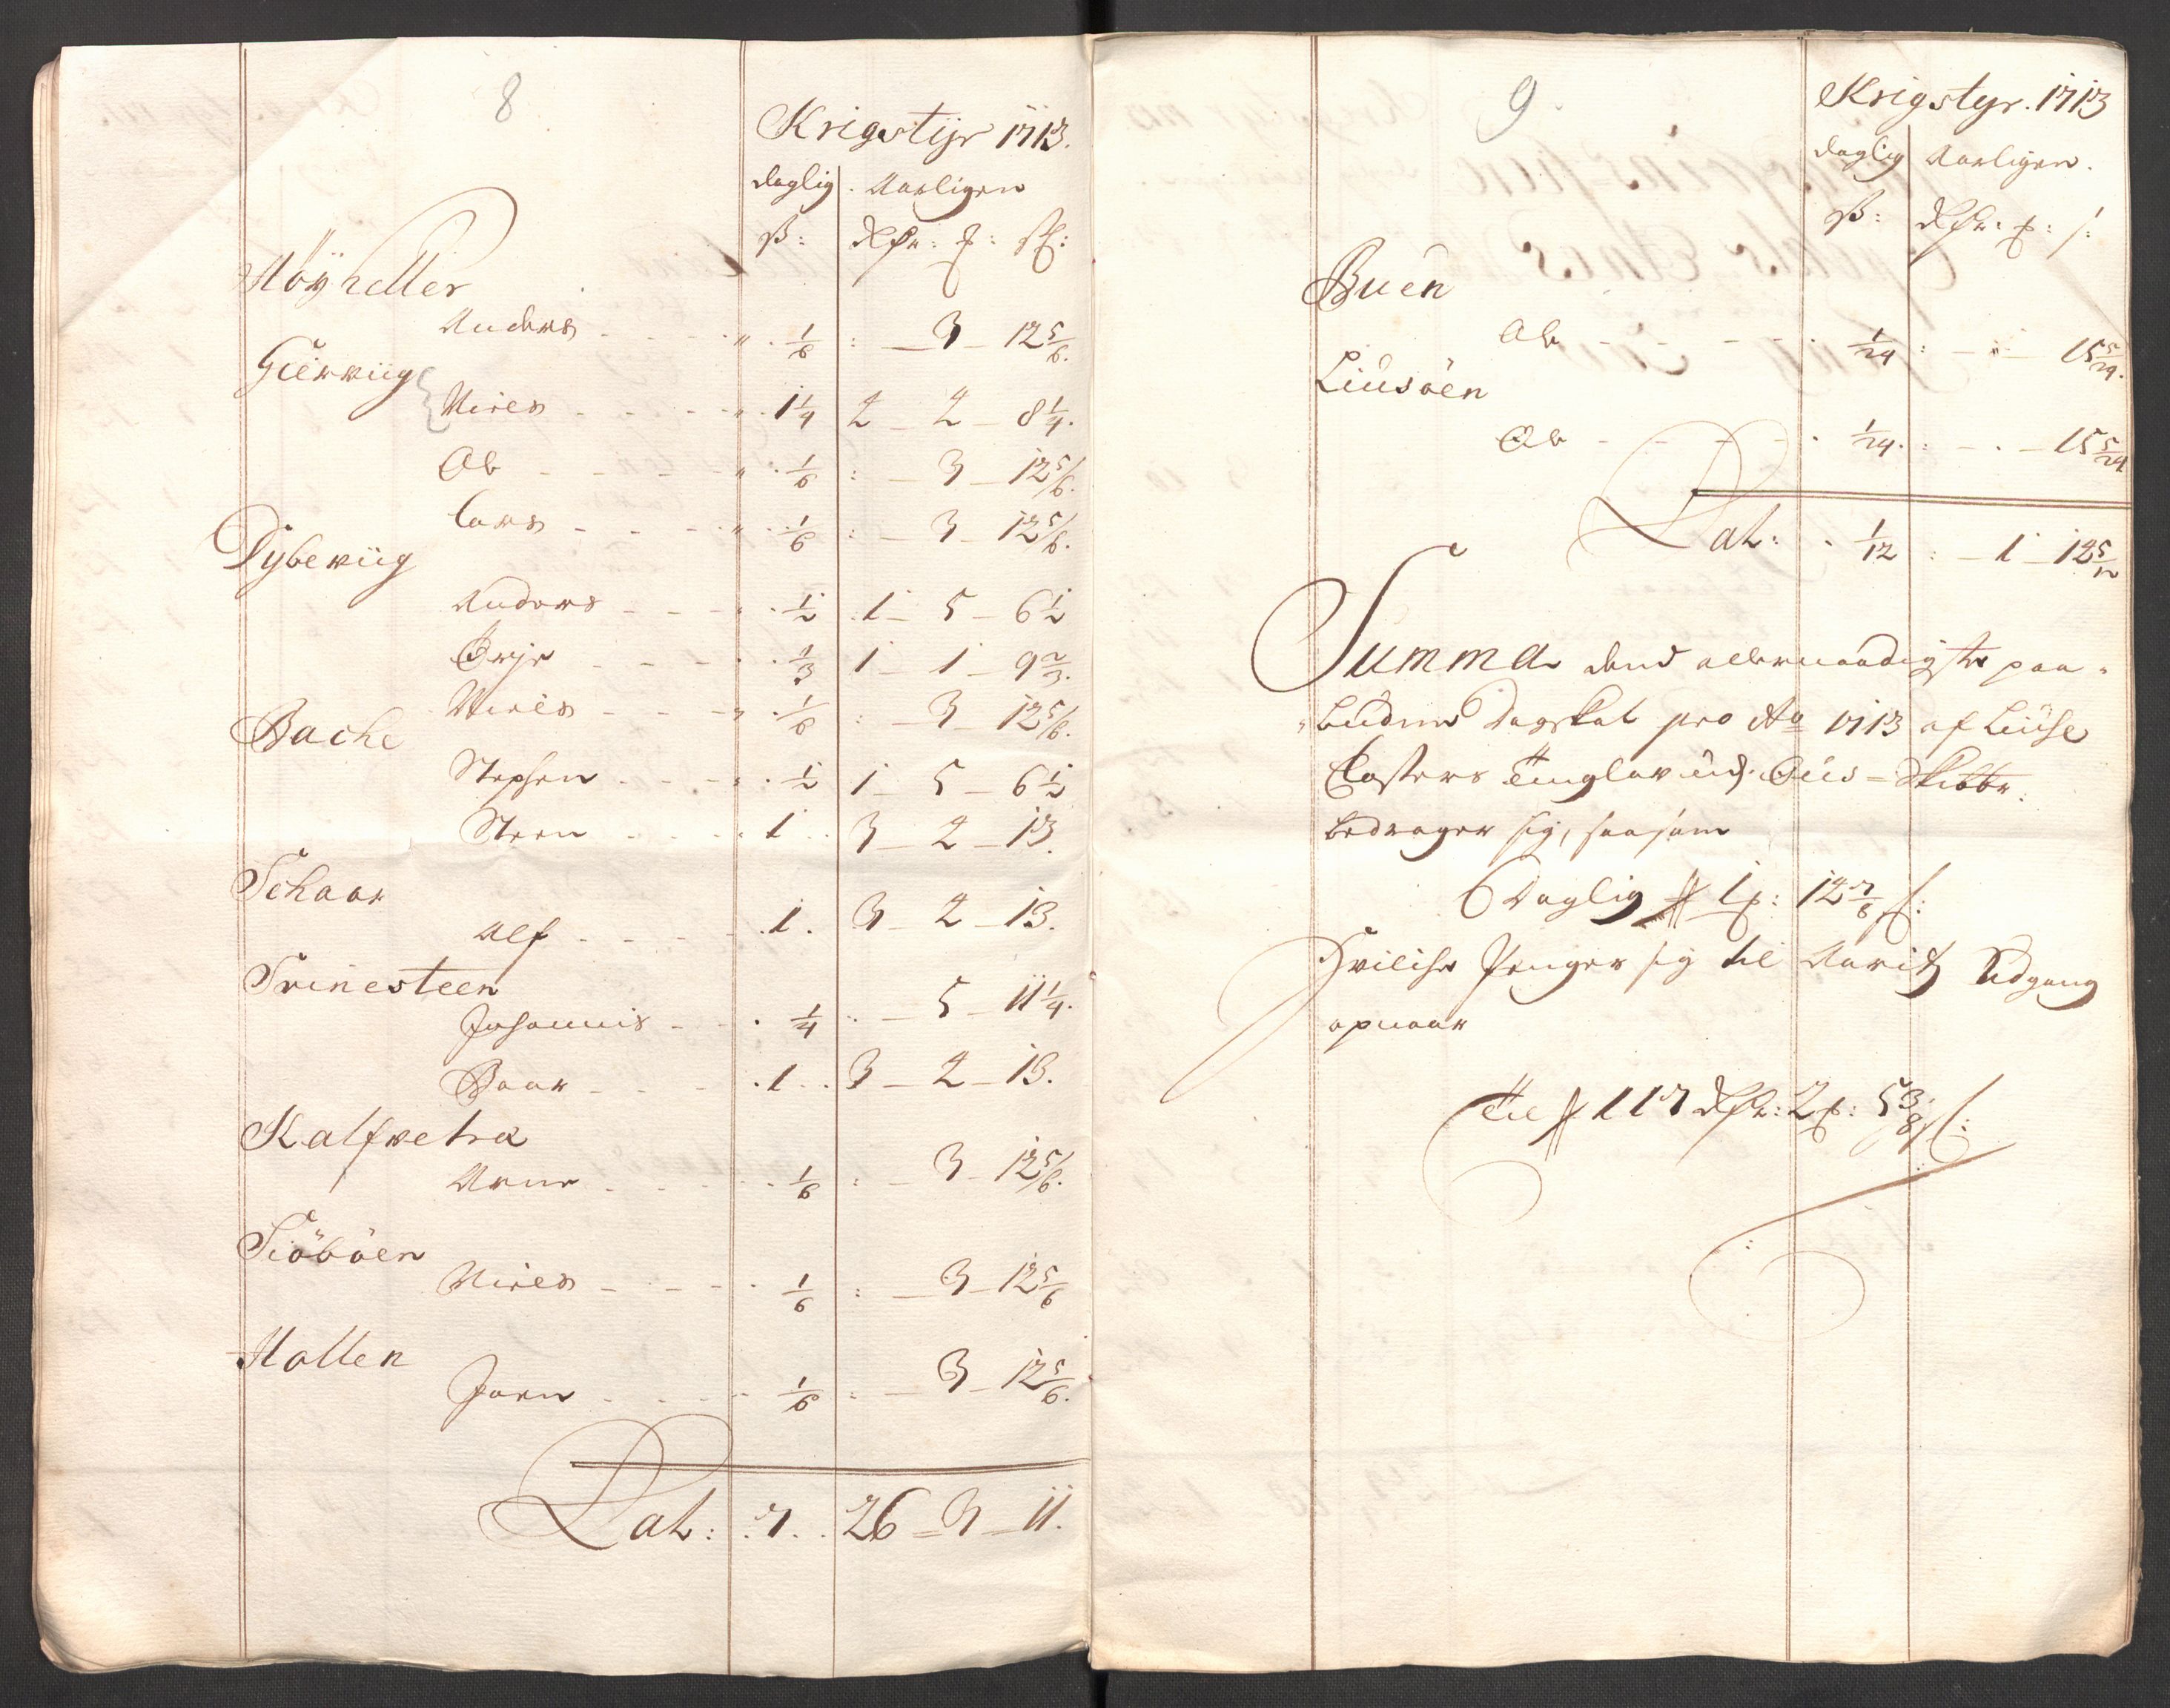 8
Krigstÿr 1713.
daglig. Aarligen
ß: Rdlr: ƺ: sk:
Höyheller
Anders - - - " . 1/6 : — 3 — 12 5/6.
Giervüg
Nires - - - " . 1 1/4 2 — 2 — 8 1/4.
Ole - - - " . 1/6 : — 3 — 12 5/6.
Lars - - - " . 1/6 : — 3 — 12 5/6.
Dybevüg
Anders - - - . 1/2 1 — 5 — 6 1/2
Brÿr - - - . 1/3 1 — 1 — 9 2/3.
Nires - - - . 1/6 : — 3 — 12 5/6.
Bache
Stephen - - - . 1/2 1 — 5 — 6 1/2
Steen - - - . 1 . . 3 — 2 — 13.
Schaar
Alf - - - . 1 . 3 — 2 — 13.
Trinesteen
Johannis - - . 1/4 : — 5 — 11 1/4.
Baar - - - . 1 . . 3 — 2 — 13.
Kalfvetræ
Arne - - - . 1/6 : — 3 — 12 5/6.
Siöböen
Nires - - - . 1/6 : — 3 — 12 5/6
Hallen
Jorn - - - 1/6 : — 3 — 12 5/6.
Lat: . 7 . . 26 — 3 — 11.
9.
Krigstyr. 1713
daglig Aarligen.
ß: Rdlr: ƺ: s:
Buen
Ole - - - . 1/24 : — " — 15 5/24.
Liusöen
Ole - - - . 1/24. : — . — 15 5/24
Lat: . 1/12 : — 1 — 12 5/12
Summa dend allernaadigste paa-
budne Dagskat pro Ao 1713 af Liuse
Closters Tinglav udj Ous-Skibbr:
bedrager sig, saasom
Daglig # 1 ƺ: 12 7/8 s:
Hvilche Penger sig til Aaritz Udgang
opnaar
Til # 117 Rdlr: 2 ƺ: 5 3/8 s: